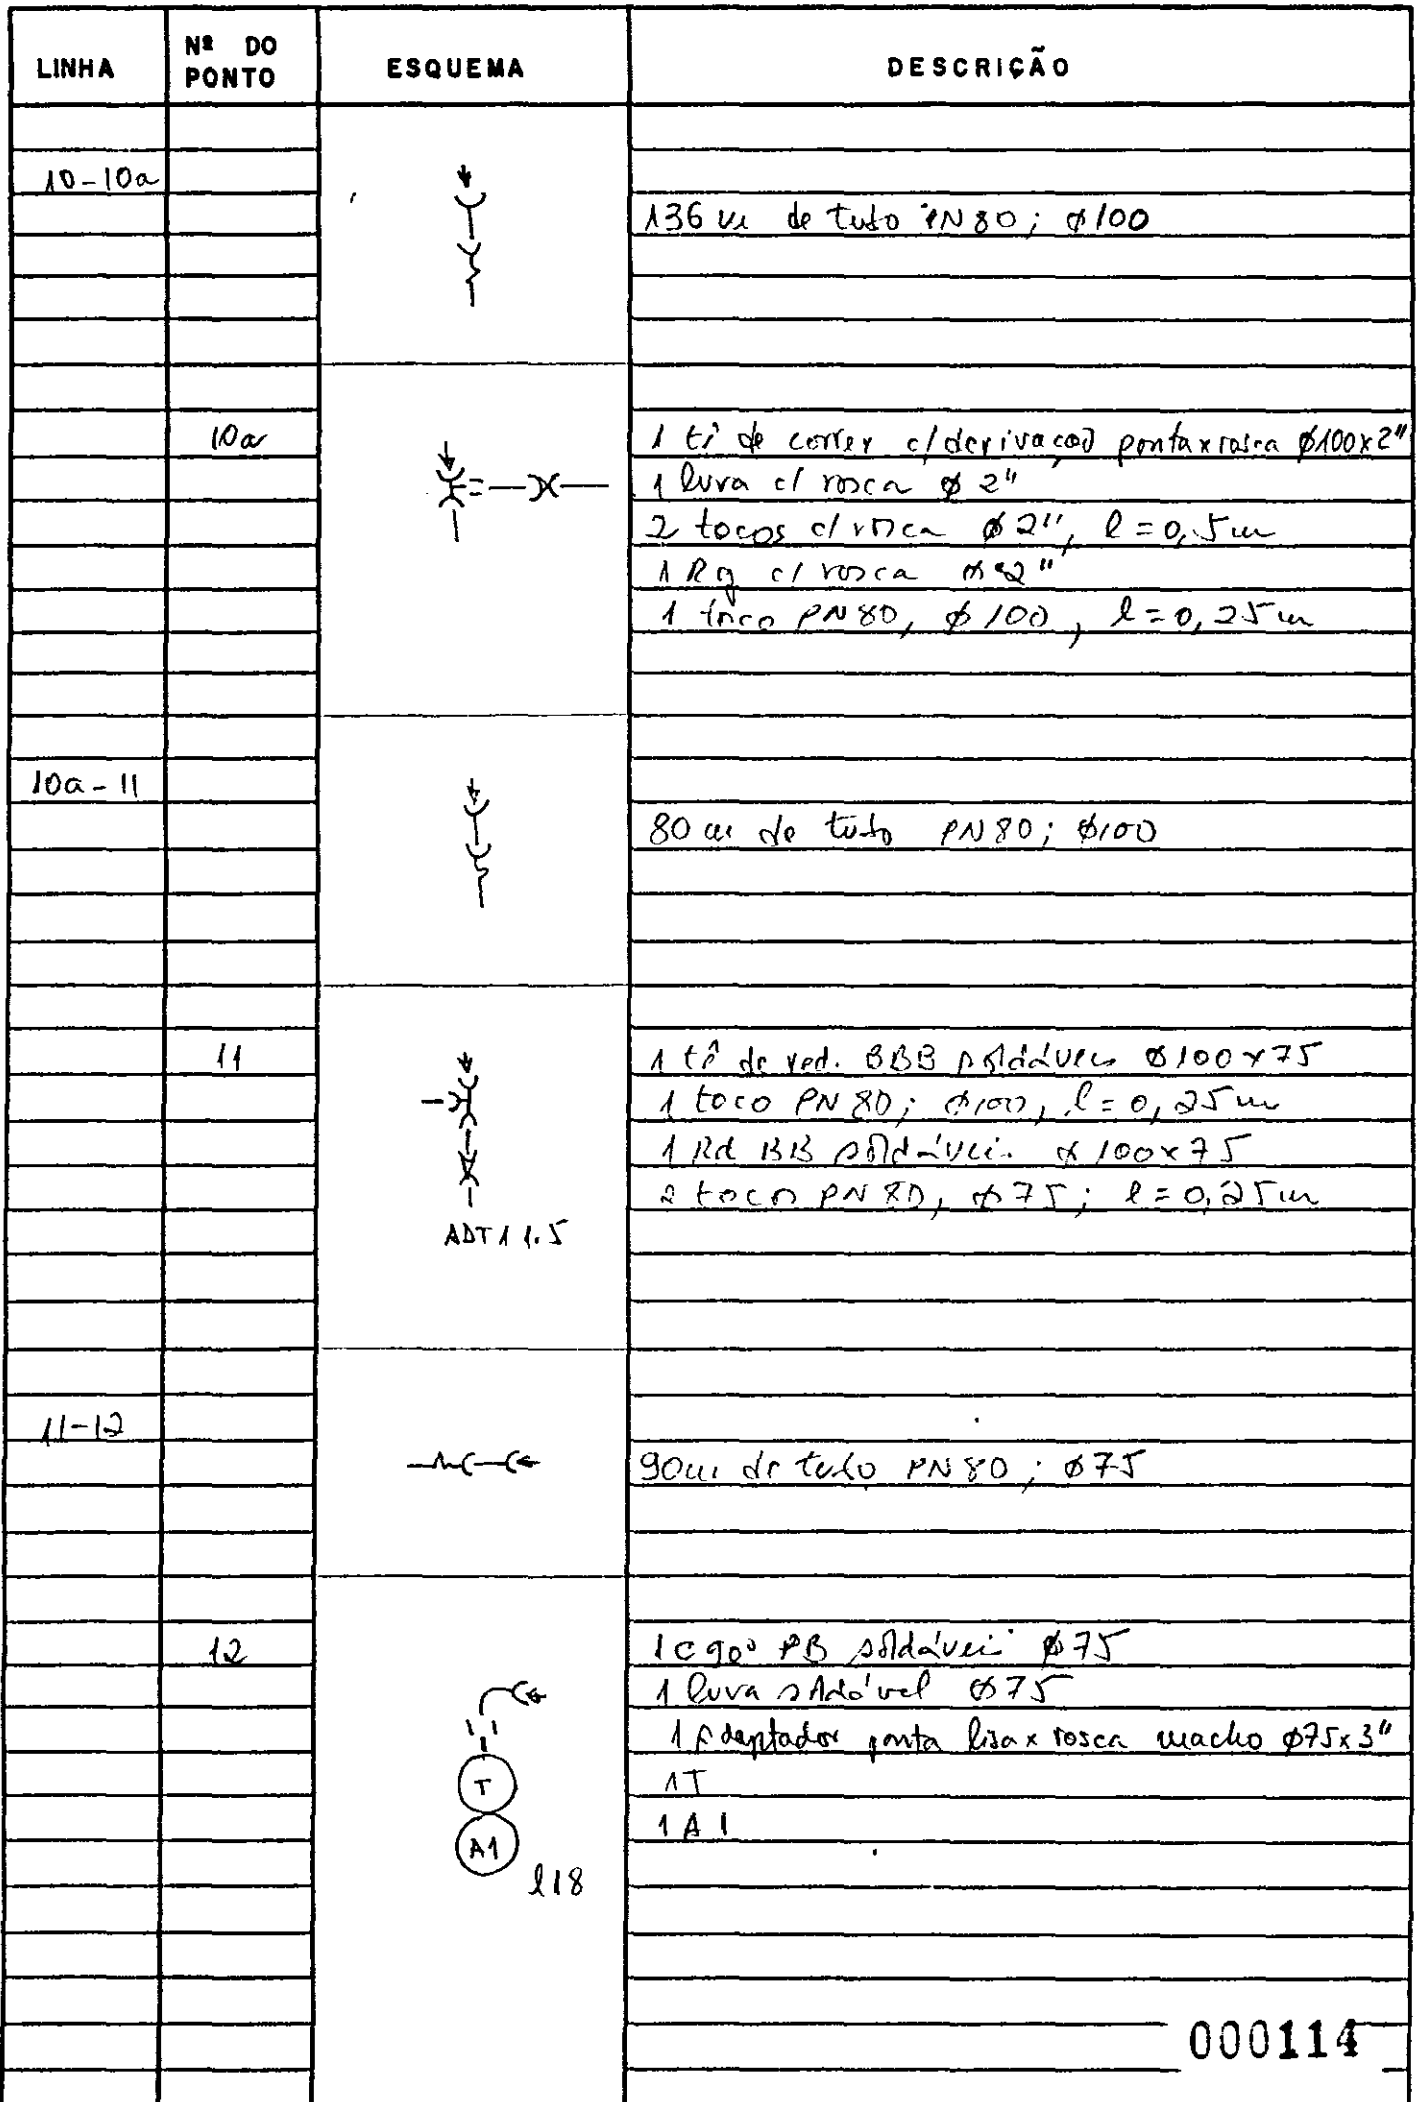 LINHA
Nº DO PONTO
ESQUEMA
DESCRIÇÃO
10-10a
136 m de tubo PN80; ø100
10a
1 tê de correr c/derivacao ponta x rosca ø100x2"
1 luva c/ rosca ø 2"
2 tocos c/ rosca ø2", l=0,5m
1 Rg c/ rosca ø2"
1 toco PN80, ø100, l=0,25m
10a-11
80 m de tubo PN80; ø100
11
1 tê de red. BBB soldável ø100x75
1 toco PN80; ø100, l=0,25m
1 Rd BB soldável ø100x75
2 toco PN80, ø75; l=0,25m
ADT11.5
11-12
90m de tubo PN80; ø75
12
1 C 90° PB soldável ø75
1 luva soldável ø75
1 Adaptador ponta lisa x rosca macho ø75x3"
T
1T
A1
1 A1
l18
000114